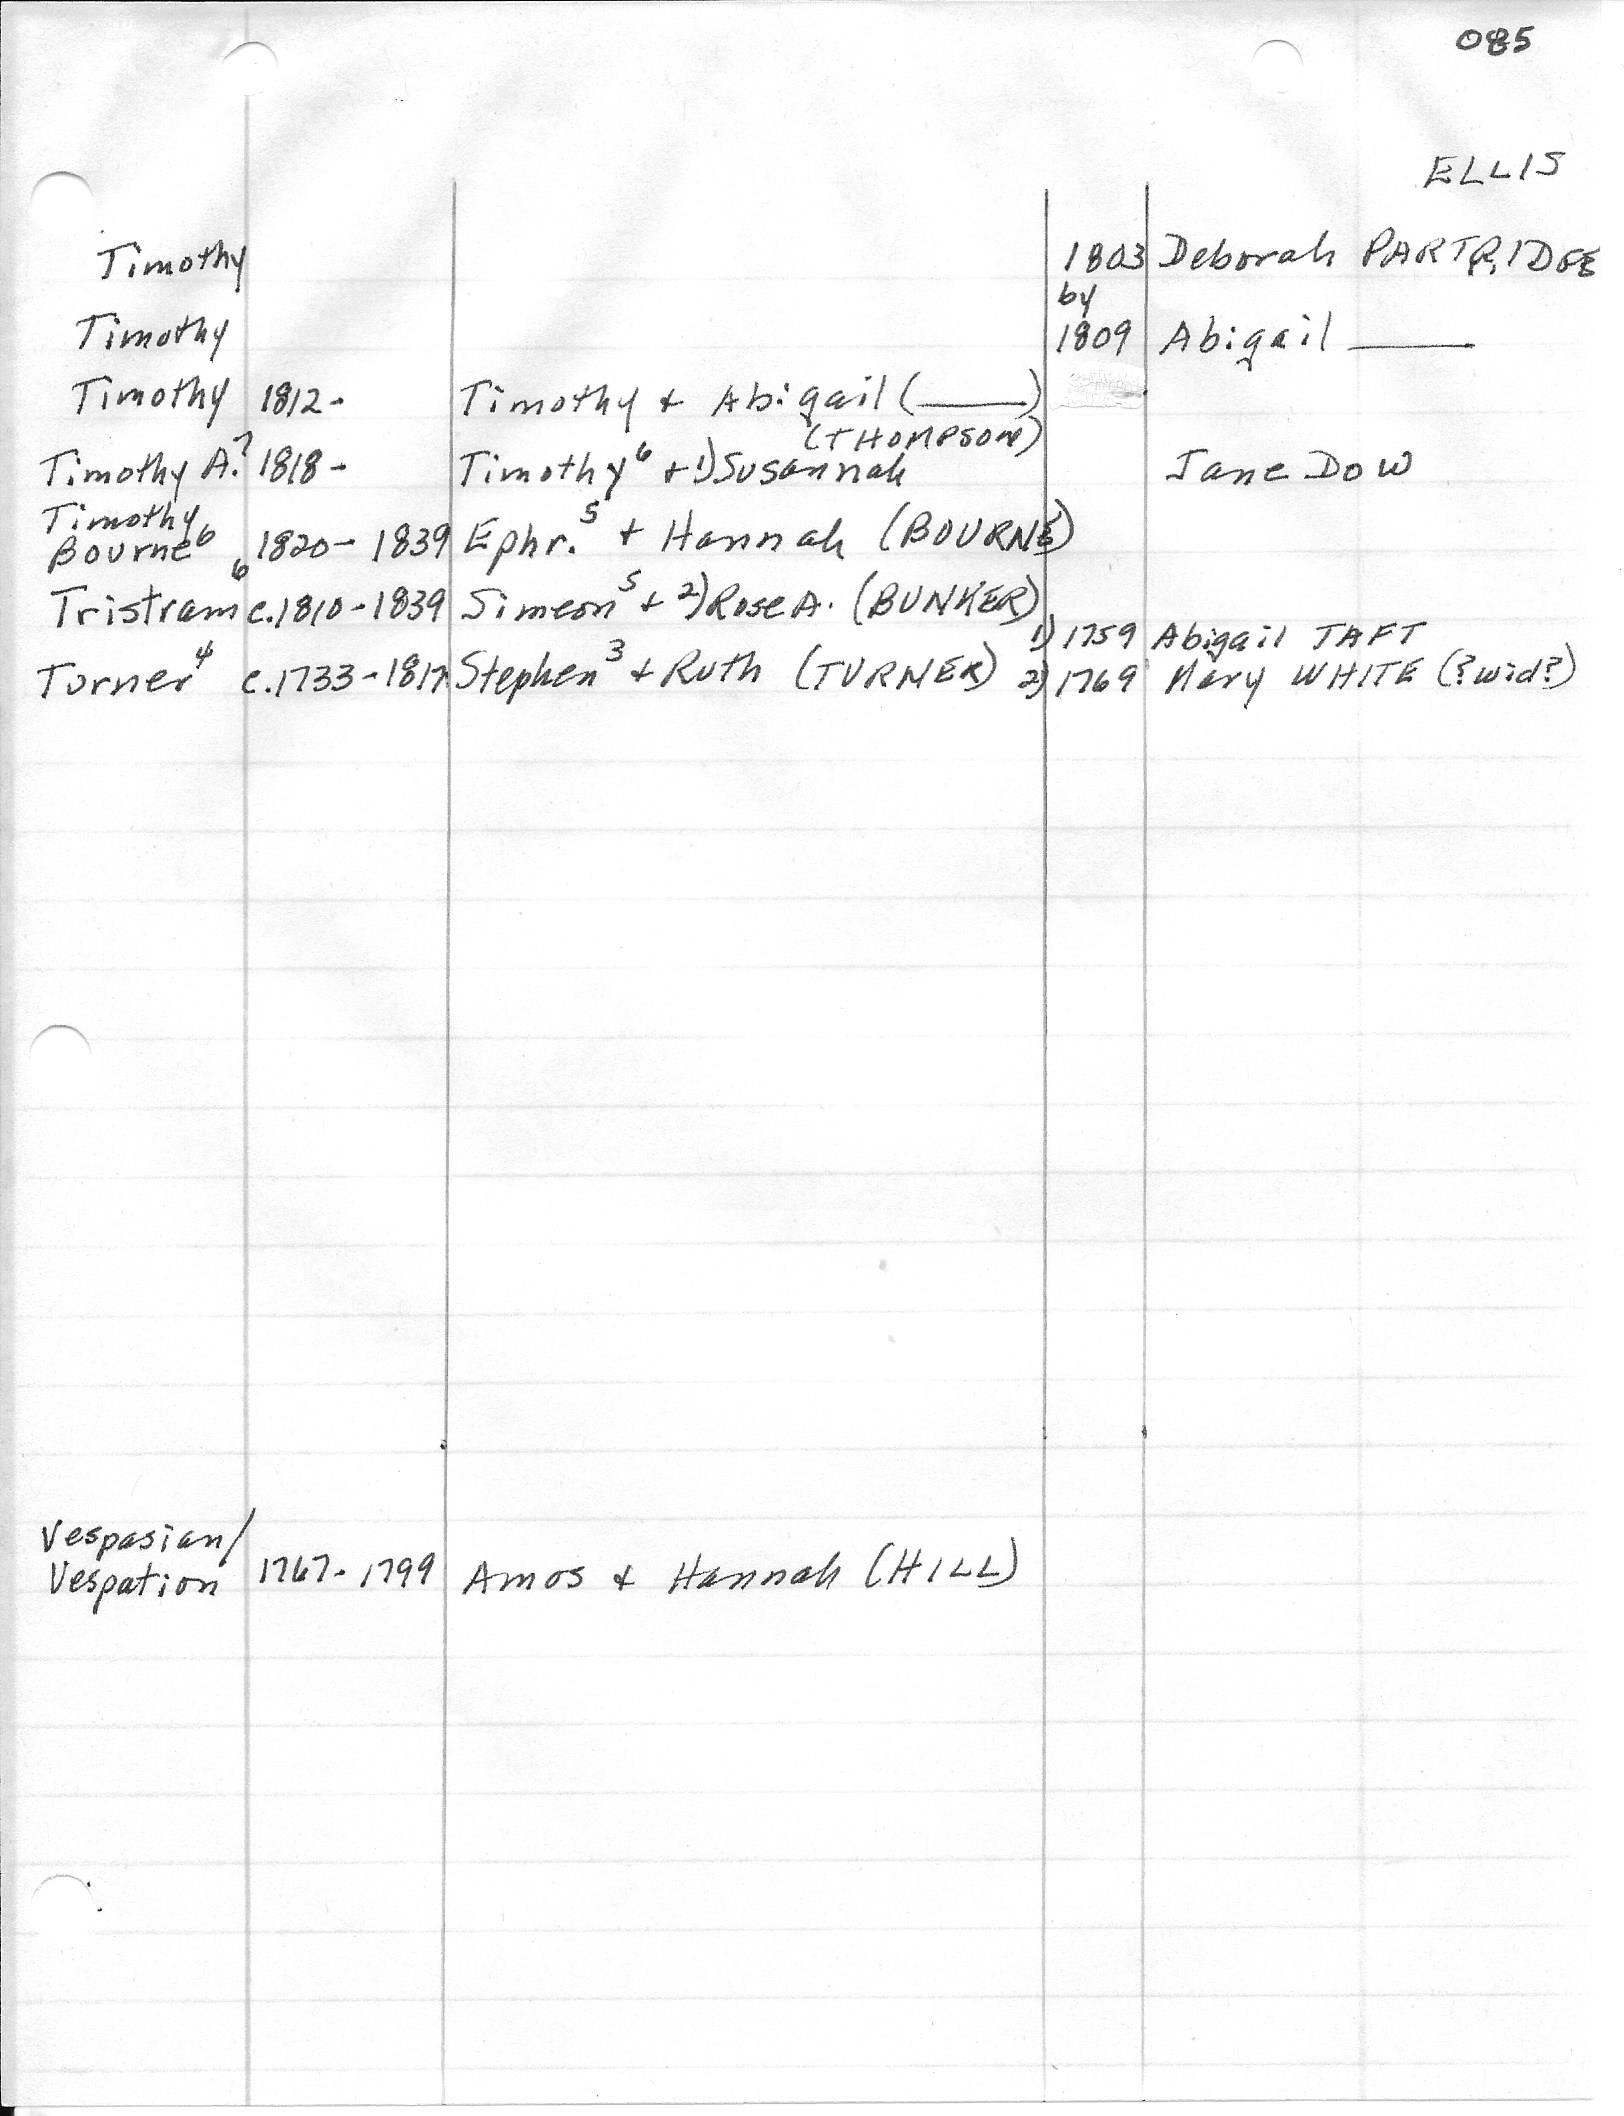 085
ELLIS
Timothy 1803 Deborah PARTRIDGE
by
Timothy 1809 Abigail ____
Timothy 1812- Timothy + Abigail (____)
(THOMPSON)
Timothy A.7 1818- Timothy6 + 1) Susannah Jane DOW
Timothy
Bourne6 1820-1839 Ephr.5 + Hannah (BOURNE)
Tristram6 c.1810-1839 Simeon5 + 2) Rose A. (BUNKER)
1) 1759 Abigail TAFT
Turner4 c.1733-1817 Stephen3 + Ruth (TURNER) 2) 1769 Mary WHITE (?wid?)
Vespasian/
Vespation 1767-1799 Amos + Hannah (HILL)